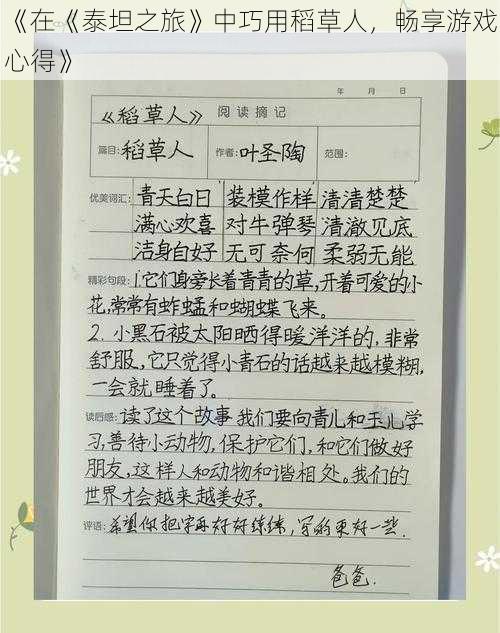 《在《泰坦之旅》中巧用稻草人，畅享游戏
心得》
年 月 日
《稻草人》 阅读摘记
篇目：稻草人 作者：叶圣陶 范围：
优美词汇：青天白日 装模作样 清清楚楚
满心欢喜 对牛弹琴 清澈见底
洁身自好 无可奈何 柔弱无能
精彩句段：1.它们身旁长着青青的草，开着可爱的小
花，常常有蚱蜢和蝴蝶飞来。
2.小黑石被太阳晒得暖洋洋的，非常
舒服，它只觉得小青石的话越来越模糊，
一会就睡着了。
读后感：读了这个故事我们要向青儿和玉儿学
习，善待小动物，保护它们，和它们做好
朋友，这样人和动物和谐相处。我们的
世界才会越来越美好。
评语：希望你把字再好好练练，写的更好一些.
爸爸.